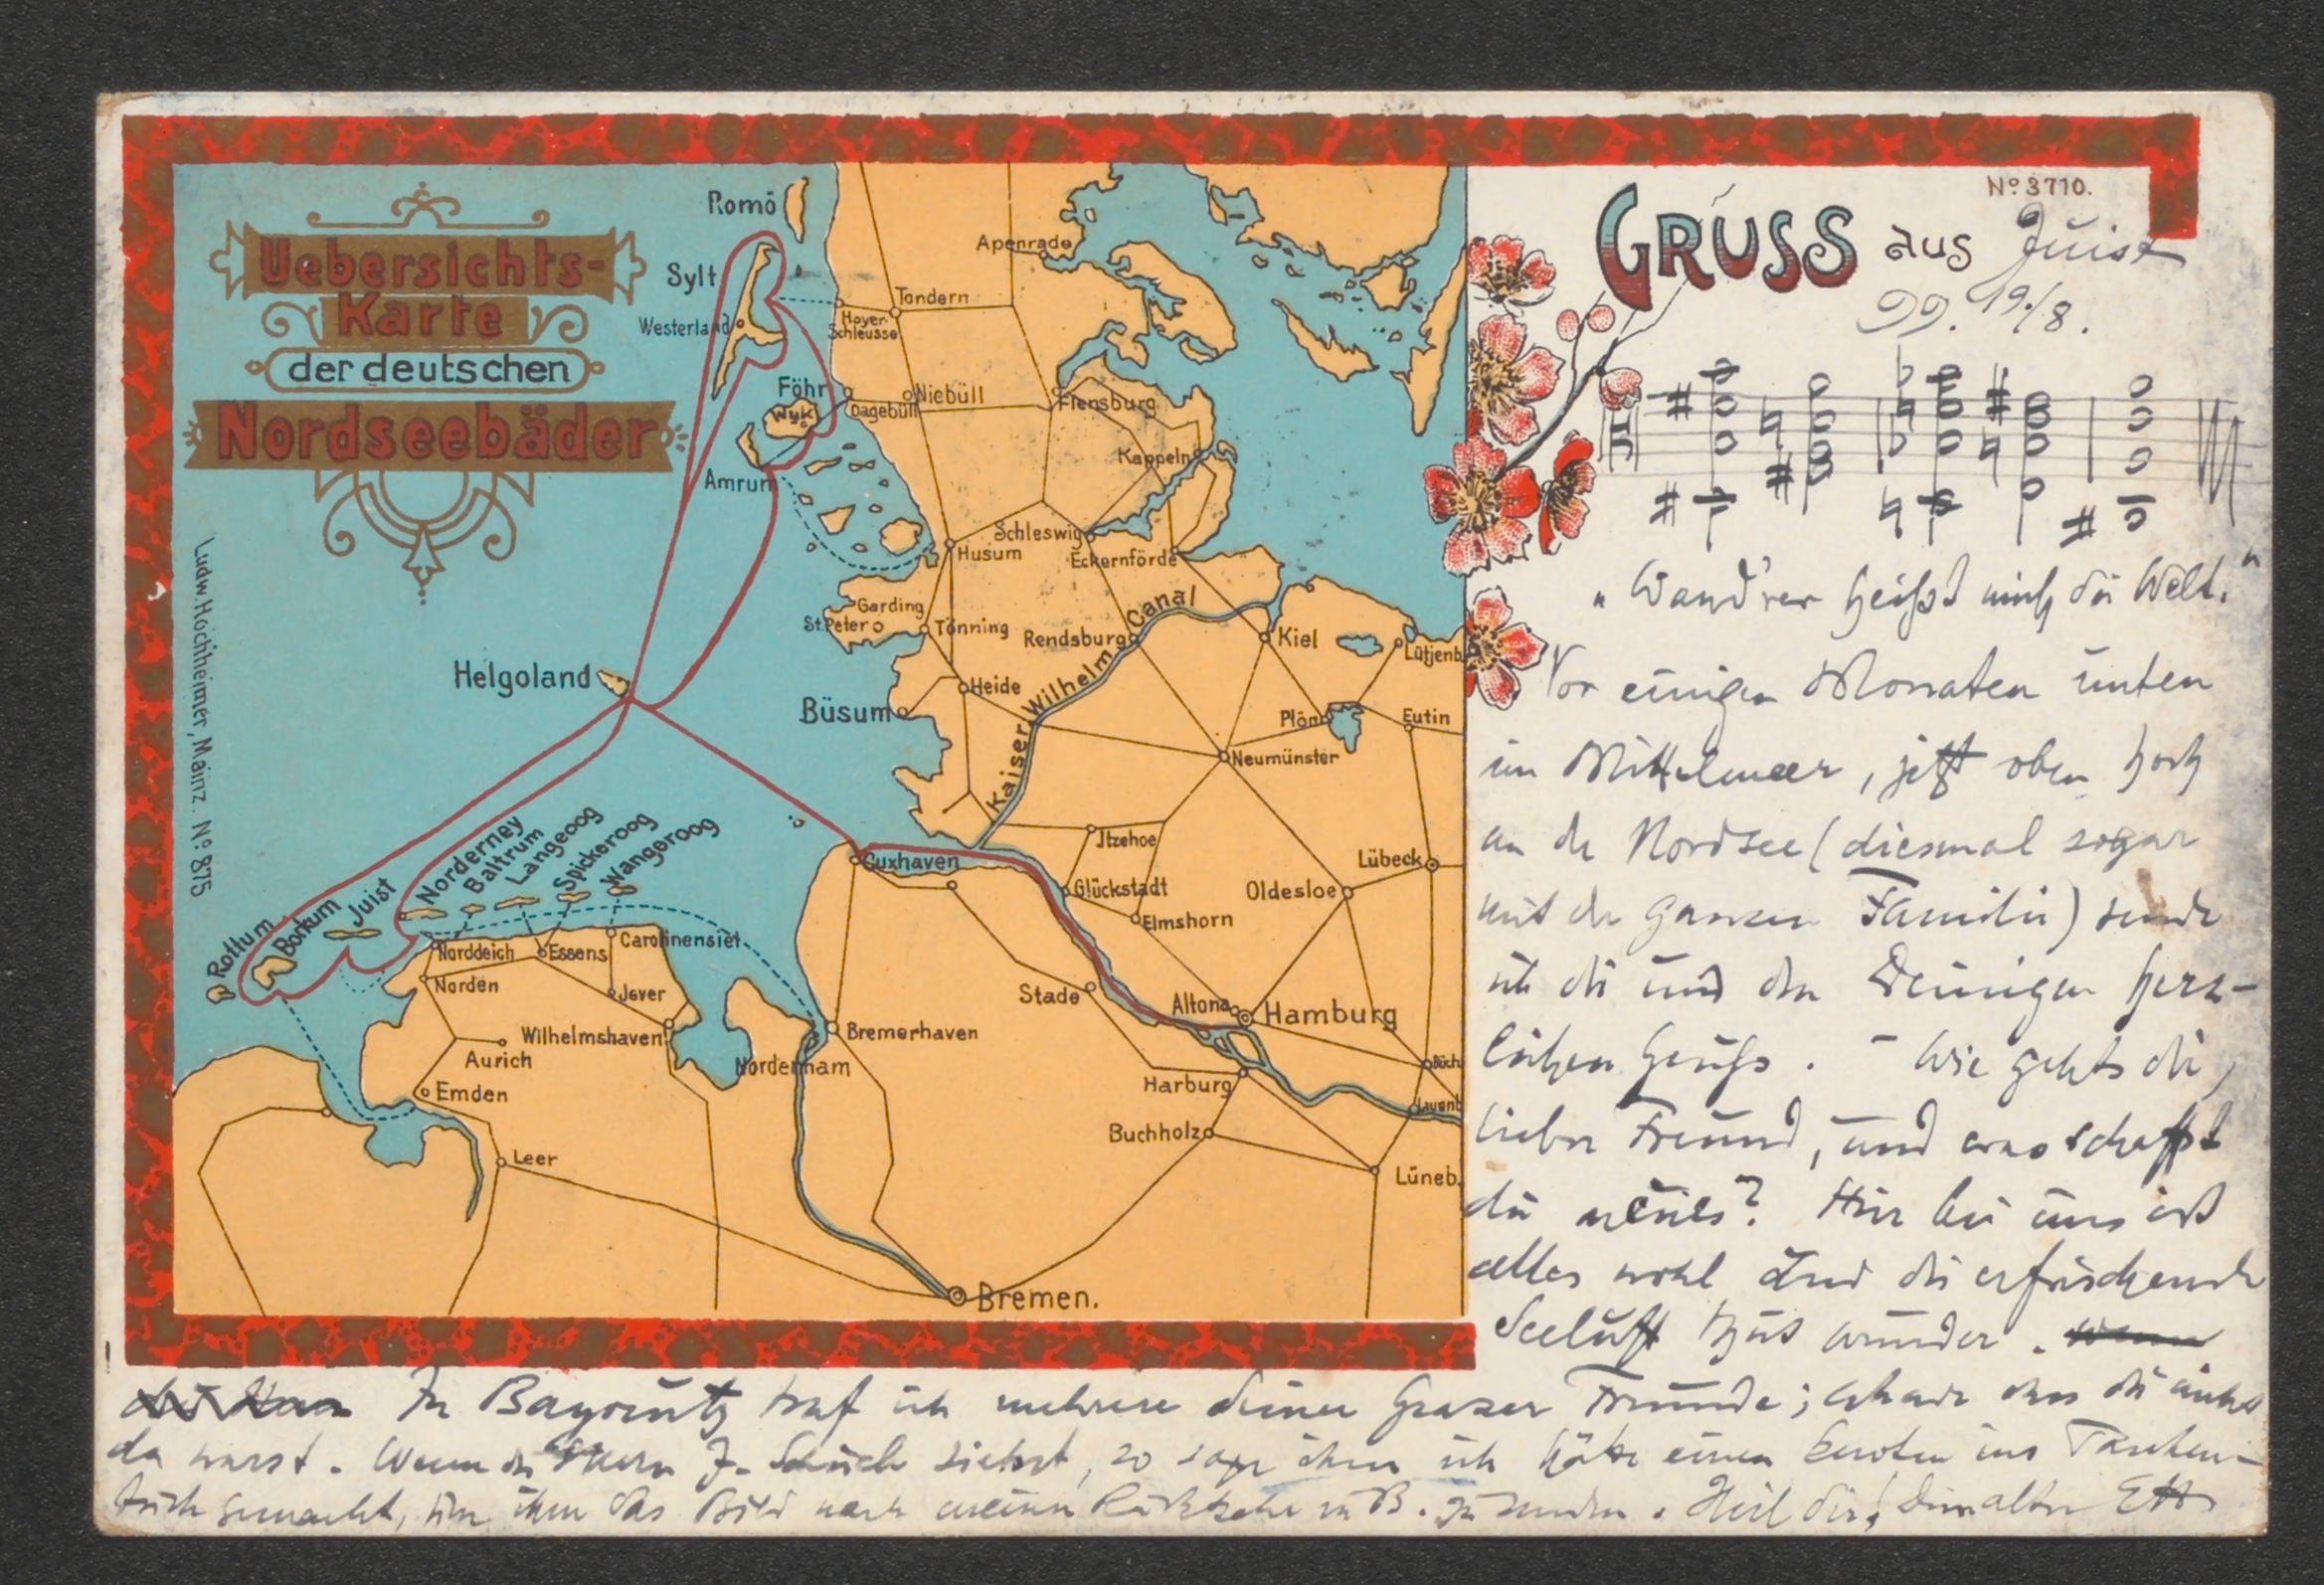 Uebersichts-
Karte
der deutschen
Nordseebäder
Ludw. Hochheimer, Mainz. Nº 875
Romö
Sylt
Westerland
Apenrade
Tondern
Hoyer-
Schleusse
Föhr
Wyk
Dagebüll
Niebüll
Flensburg
Amrum
Kappeln
Schleswig
Husum
Eckernförde
Garding
St. Peter
Tönning
Rendsburg
Kaiser Wilhelm Canal
Kiel
Lütjenb.
Helgoland
Heide
Büsum
Plön
Eutin
Neumünster
Jtzehoe
Cuxhaven
Lübeck
Glückstadt
Oldesloe
Elmshorn
Rottum
Borkum
Juist
Norderney
Baltrum
Langeoog
Spickeroog
Wangeroog
Norddeich
Essens
Carolinensiel
Norden
Jever
Stade
Altona
Hamburg
Wilhelmshaven
Bremerhaven
Aurich
Nordenham
Büch
Emden
Harburg
Lauenb
Buchholz
Leer
Lüneb.
Bremen.
Nº 3710.
GRUSS aus Juist
99. 19./8.
„Wand'rer heißt mich die Welt.“
Vor einigen Monaten unten
im Mittelmeer, jetzt oben hoch
an der Nordsee (diesmal sogar
mit der ganzen Familie) sende
ich dir und den Deinigen herz-
lichen Gruß. – Wie gehts dir,
lieber Freund, und was schaffst
du neues? Hier bei uns ist
alles wohl und die erfrischende
Seeluft thut wunder. wenn
In Bayreuth traf ich mehrere deiner Grazer Freunde; schade dass du nicht
da warst. Wenn du Herrn F. siehst, so sage ihm ich hätte einen Knoten ins Taschen-
tuch gemacht, um ihm das Bild nach meiner Rückkehr in B. zu senden. Heil dir! Dein alter